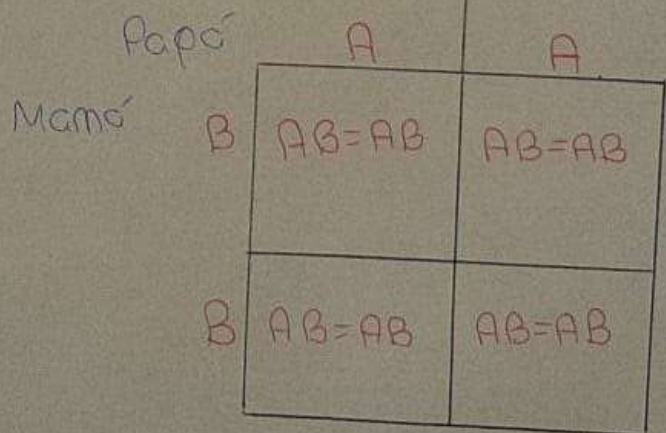 Papá A A
Mamá B AB=AB AB=AB
B AB=AB AB=AB